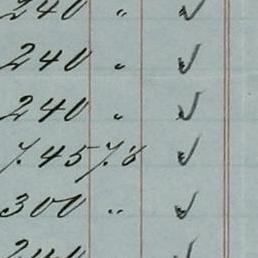 240 " ✓
240 " ✓
240 " ✓
7.457.8 ✓
300 " ✓
240 ✓